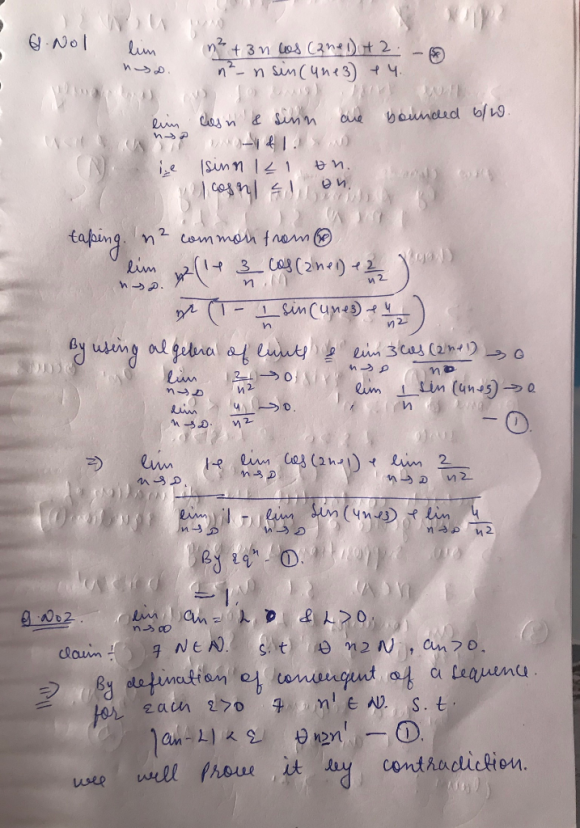 Q.No1 lim n→∞ n² + 3n cos(2n+1) + 2 / n² - n sin(4n+3) + 4 - ⊛
lim n→∞ cosn & sinn are bounded b/w
-1 & 1.
i.e |sinn| ≤ 1 ∀ n.
|cosn| ≤ 1 ∀ n.
taking n² common from ⊛
lim n→∞ n²(1 + 3/n cos(2n+1) + 2/n²)
n²(1 - 1/n sin(4n+3) + 4/n²)
By using algebra of limits & lim n→∞ 3cos(2n+1)/n → 0
lim n→∞ 2/n² → 0 lim 1/n sin(4n+3) → 0
lim n→∞ 4/n² → 0. - ①.
⇒ lim n→∞ 1 + lim n→∞ cos(2n+1) + lim n→∞ 2/n²
lim n→∞ 1 - lim n→∞ sin(4n+3) + lim n→∞ 4/n²
By eqⁿ - ①.
= 1.
Q.No2. lim n→∞ an = L & L>0.
claim:- ∃ N∈N. s.t ∀ n≥N, an>0.
⇒ By defination of convengent of a sequence.
for each ε>0 ∃ n' ∈ N. s.t.
|an-L| < ε ∀ n≥n' - ①.
wee will prove it by contradiction.